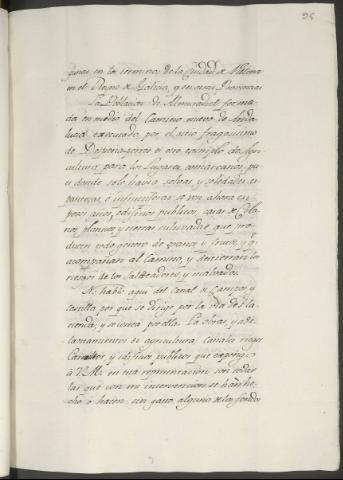 95
ginas en los terminos de la Ciudad de
en el Reyno de Galicia, y en otras Provincias
La Poblacion de Almuradiel forma-
da en medio del Camino nuevo de Anda-
lucia executado por el sitio fragosisimo
de Despeña-perros es otro exemplo de Agri-
cultura para los Lugares comarcanos, pu-
es donde solo havia selvas y soledades es-
pantosas, e infructiferas se ven ahora en
pocos años, edificios publicos, casas de Colo-
nos, plantios y tierras cultivadas que pro-
ducen todo genero de granos y frutos, y q.
acompañan al Camino, y destierran los
riesgos de los Salteadores, y malvados
No hablo aqui del Canal de Campos y
Castilla por que se dirige por la via de Ha-
cienda; y se costea por ella. La obras, y ade-
lantamientos de agricultura, canales, riegos
Caminos, y edificios publicos que expongo
à V.M. en esta representacion son todos
los que con mi intervencion se han he-
cho ò hacen, sin gasto alguno de los fondos